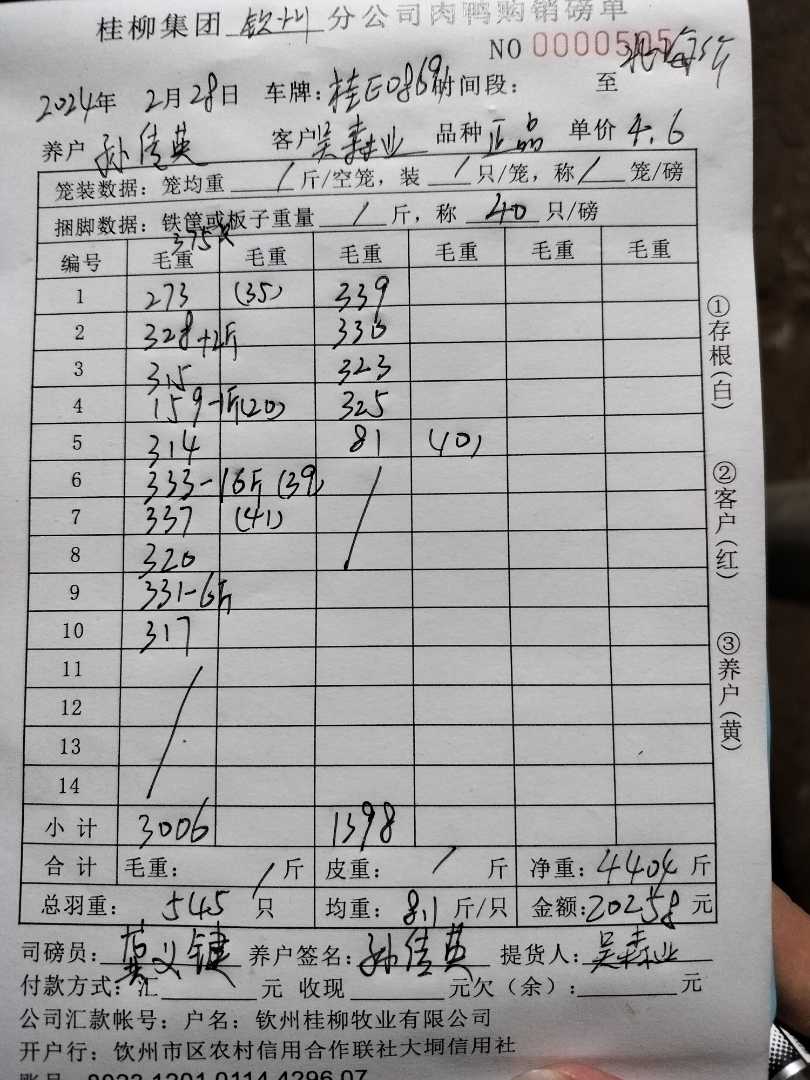 桂柳集团 钦州 分公司肉鸭购销磅单
NO 0000505
2024年 2月28日 车牌:桂E0869 时间段: 至
养户 孙倩英 客户 吴森业 品种 正品 单价 4.6
笼装数据:笼均重 / 斤/空笼,装 / 只/笼,称 / 笼/磅
捆脚数据:铁筐或板子重量 / 斤,称 40 只/磅
375只
编号 毛重 毛重 毛重 毛重 毛重 毛重
1 273 (35) 339
2 328+2斤 330
3 315 323
4 159-1斤(20) 325
5 314 81 (40)
6 333-16斤 (39)
7 337 (41)
8 320
9 331-6斤
10 317
11
12
13
14
小计 3006 1398
合计 毛重: / 斤 皮重: / 斤 净重:4404斤
总羽重: 545 只 均重: 8.1 斤/只 金额:20258元
司磅员: 义键 养户签名: 孙倩英 提货人: 吴森业
付款方式:汇 元 收现 元欠(余): 元
公司汇款帐号:户名:钦州桂柳牧业有限公司
开户行:钦州市区农村信用合作联社大垌信用社
①存根(白)
②客户(红)
③养户(黄)